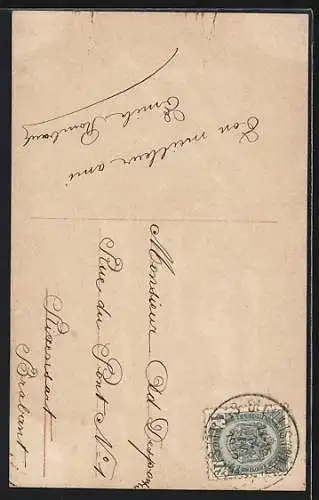 Ton meilleur ami
Emile Rombaut
Monsieur Old Despay
Rue du Pont N° 1
Rixensart
Brabant